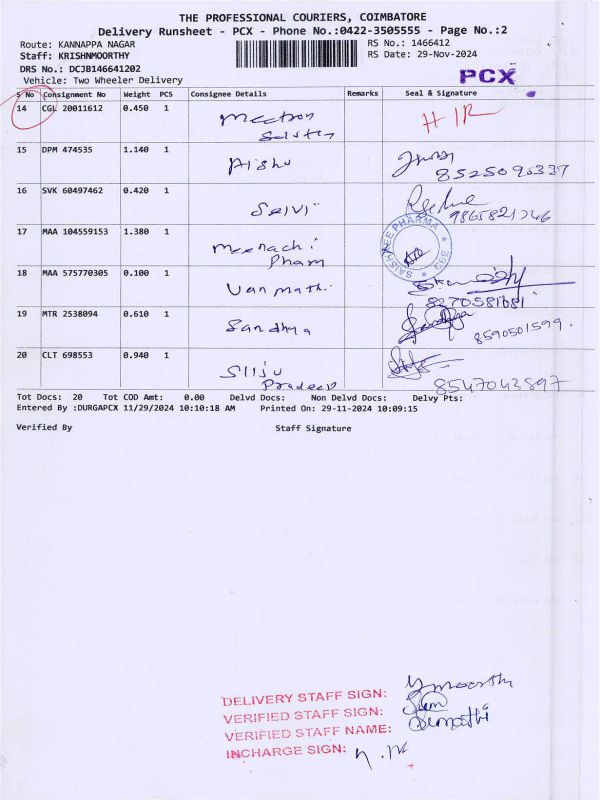 THE PROFESSIONAL COURIERS, COIMBATORE
Delivery Runsheet - PCX - Phone No.:0422-3505555 - Page No.:2
Route: KANNAPPA NAGAR RS No.: 1466412
Staff: KRISHNMOORTHY RS Date: 29-Nov-2024
DRS No.: DCJB146641202
Vehicle: Two Wheeler Delivery PCX
S No Consignment No Weight PCS Consignee Details Remarks Seal & Signature
14 CGL 20011612 0.450 1
15 DPM 474535 1.140 1 Aishu
8525096337
16 SVK 60497462 0.420 1 Selvi
17 MAA 104559153 1.380 1 Meenachi
Pham
SAISHREE PHARMA * CBE *
18 MAA 575770305 0.100 1 Vanmathi
8270581681
19 MTR 2538094 0.610 1 Sandhya
8590501599.
20 CLT 698553 0.940 1
Pradeep 8547043897
Tot Docs: 20 Tot COD Amt: 0.00 Delvd Docs: Non Delvd Docs: Delvy Pts:
Entered By :DURGAPCX 11/29/2024 10:10:18 AM Printed On: 29-11-2024 10:09:15
Verified By Staff Signature
DELIVERY STAFF SIGN:
VERIFIED STAFF SIGN:
VERIFIED STAFF NAME: Sumathi
INCHARGE SIGN: